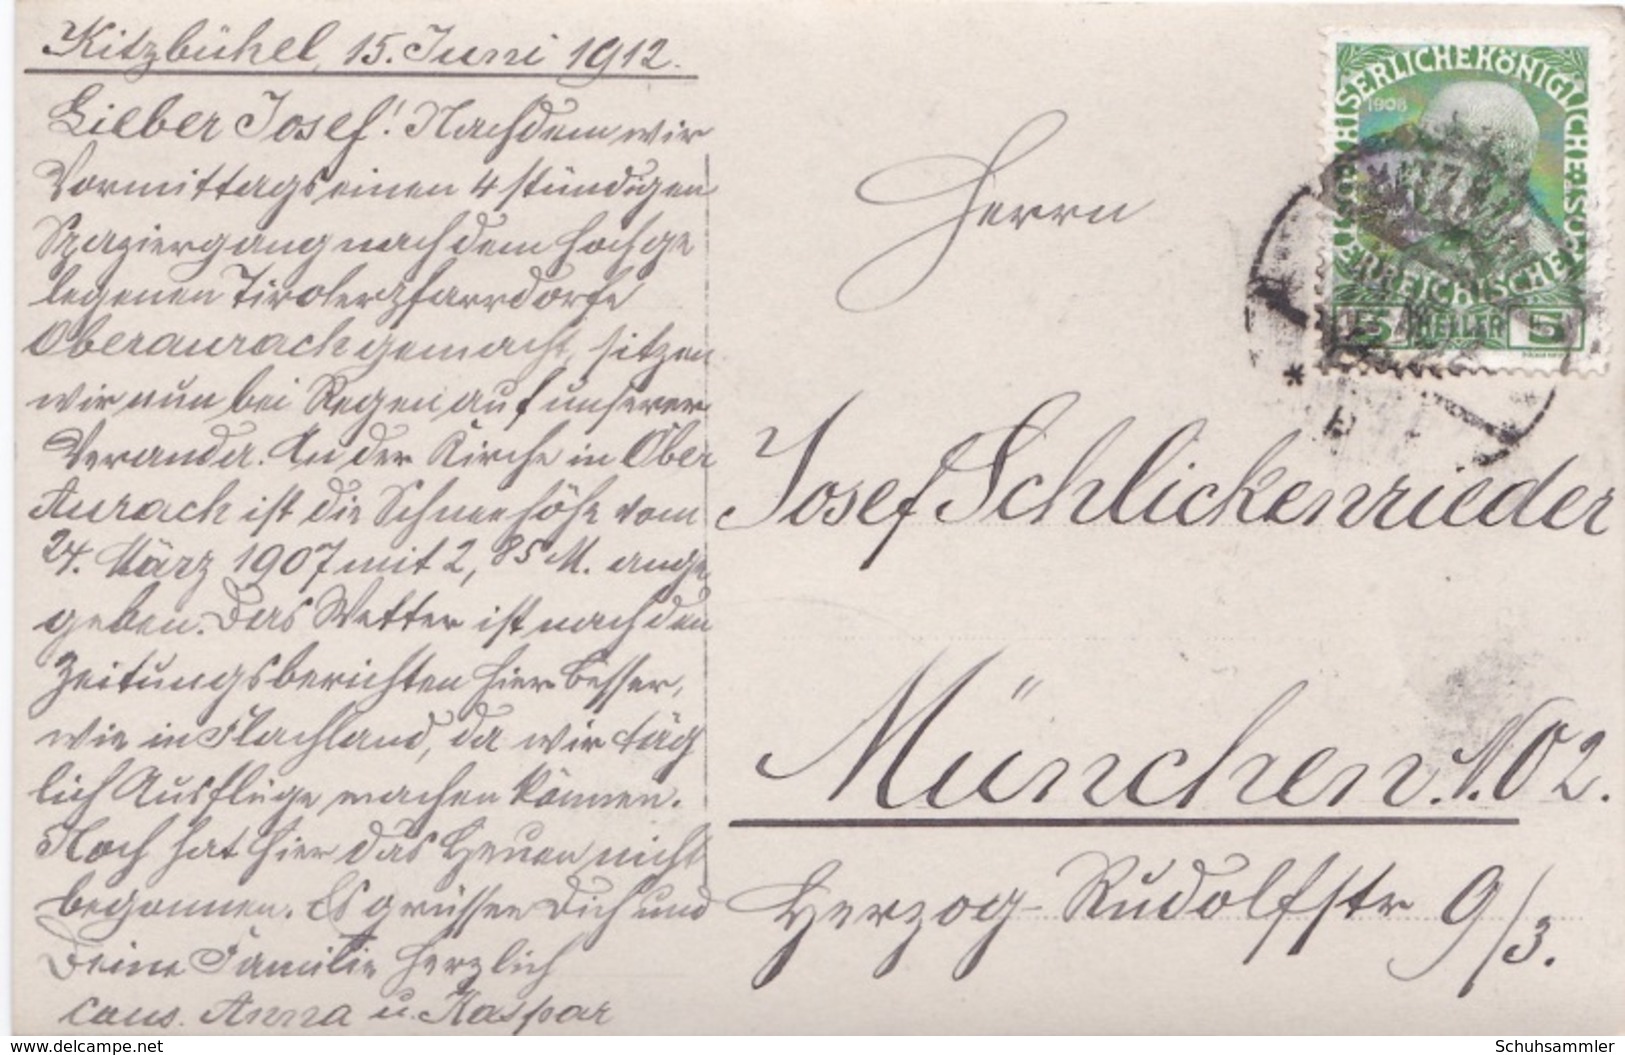 Kitzbühel, 15. Juni 1912.
Lieber Josef! Nachdem wir
Vormittags einen 4 stündigen
Spaziergang nach dem hochge
legenen Tiroler Pfarrdorfe
Oberaurach gemacht, sitzen
wir nun bei Regen auf unserer
Veranda. In der Kirche in Ober
Aurach ist die Schneehöhe vom
24. März 1907 mit 2,85 M. ange
geben. Das Wetter ist nach den
Zeitungsberichten hier besser,
wie in Flachland, da wir täg
lich Ausflüge machen können.
Noch hat hier das Heuen nicht
begonnen. Es grüssen Dich und
Deine Familie herzlich
Anna u. Kaspar
KAISERLICHE KÖNIGLICHE ÖSTERREICHISCHE
1908
5 HELLER 5
Herrn
Josef Schlickenrieder
München. N.O 2.
Herzog-Rudolfstr 9/3.
www.delcampe.net
Schuhsammler